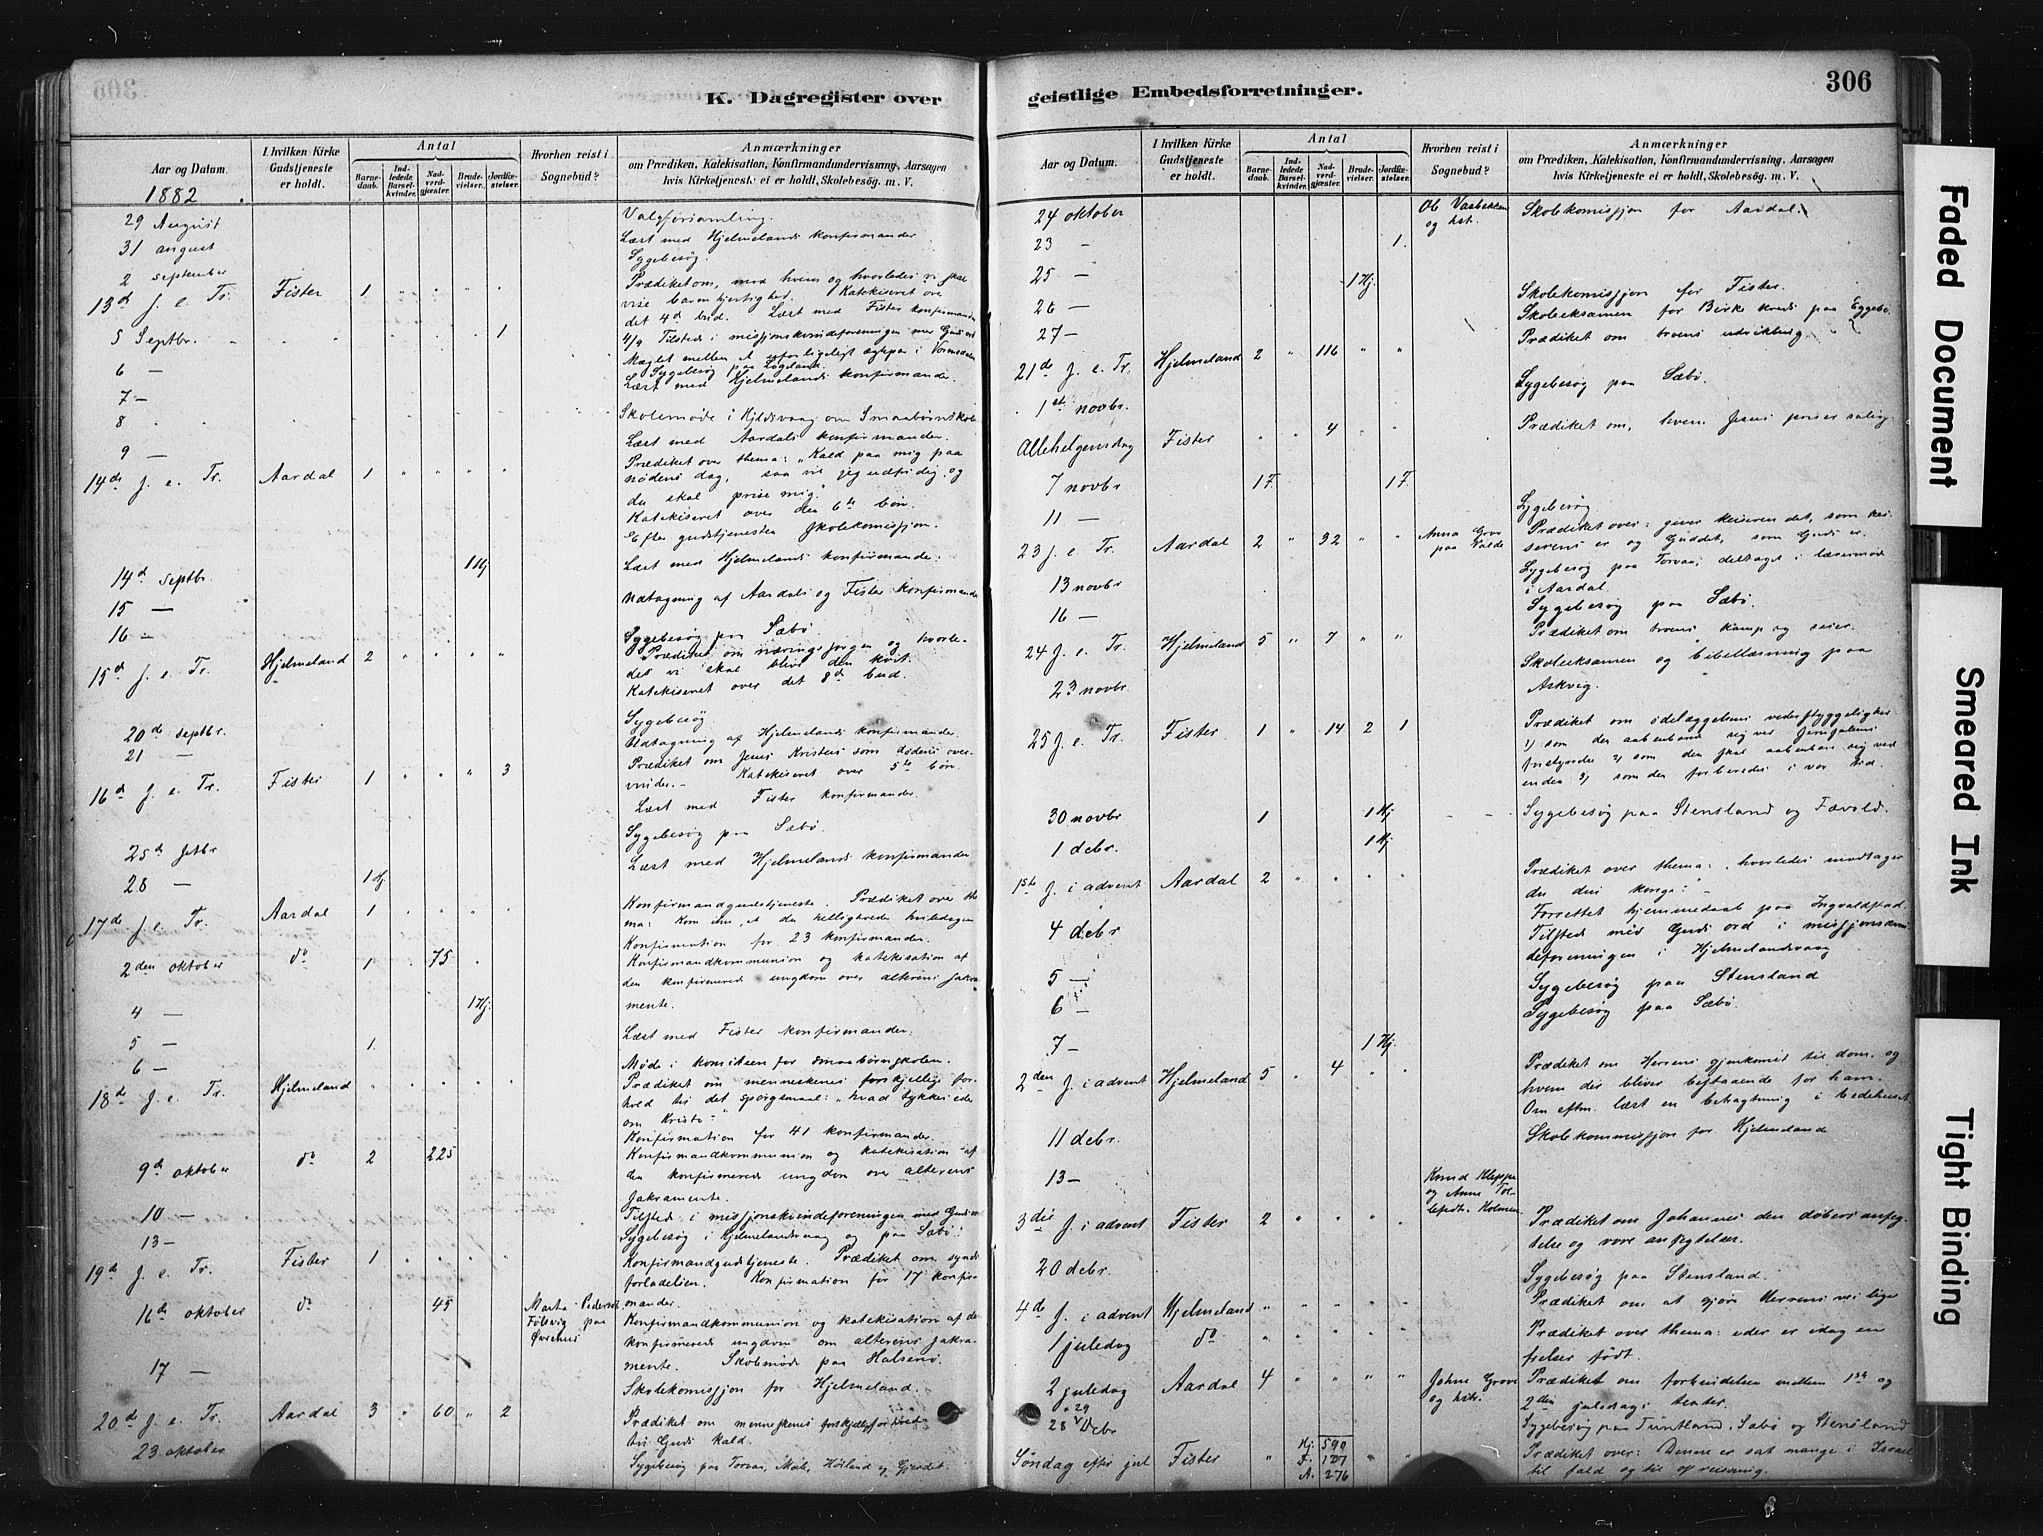 306
K. Dagregister over
Aar og Datum.
I hvilken Kirke Gudstjeneste er holdt.
Antal
Barnedaab.
Indledede Barselkvinder.
Nadverdgjæster.
Brudevielser.
Jordfæstelser.
Hvorhen reist i Sognebud?
Anmærkninger
om Prædiken, Katekisation, Konfirmandundervisning, Aarsagen
hvis Kirketjeneste ei er holdt, Skolebesög. m. V.
1882
29 August Valgforsamling.
31 august Læst med Hjelmelands konfirmander
2 september Sygebesøg.
13de s. e. Tr. Fister 1 " Prædiket om, mod hvem og hvorledes vi skal
vise barmhjertighed. Katekiseret over
det 4de bud. Læst med Fister konfirmander
5 Septbr. 1 4/9 Tilsted i misjonskvindeforeningen med Guds ord
6 — Mæglet mellem et uforligeligt ægtepar i
Sygebesøg paa
7 — Læst med Hjelmelands konfirmander.
8 Skolemøde i Hjelmsvaag om Smaabørnsskole
9 — Læst med Aardals konfirmander.
14de s. e. Tr. Aardal 1 " " " " Prædiket over thema: "Kald paa mig paa
nødens dag, saa vil jeg udfri dig, og
du skal prise mig."
Katekiseret over den 6te bøn.
Efter gudstjenesten skolekomisjon.
14de septbr. 1 Hj Læst med Hjelmelands konfirmander.
15 — Udtagning af Aardals og Fister konfirmander
16 — Sygebesøg paa Sæbø.
15de s. e. Tr. Hjelmeland 2 " " " " Prædiket om næringssorgen og hvorle-
des vi skal blive den kvit.
Katekiseret over det 8de bud.
20de septbr. Sygebesøg
21 — Udtagning af Hjelmelands konfirmander
16de s. e. Tr. Fister 1 " " " 3 Prædiket om Jesus Kristus som dødens over-
vinder. Katekiseret over 5te bøn.
Læst med Fister konfirmander.
25de sptbr Sygebesøg paa Sæbø
28 — 1 Hj. Læst med Hjelmelands konfirmander
17de s. e. Tr. Aardal 1 " " " " Konfirmandgudstjeneste. Prædiket over the-
ma: Kom ihu, at du helligholde hviledagen
Konfirmation for 23 konfirmander.
2den oktober do 1 . 75 . Konfirmandkommunion og katekisation af
den konfirmerede ungdom over alterens sakra-
4 — 1 Hj. mente.
5 — 1. Læst med Fister konfirmander.
6 — Møde i komiteen for smaabørnskolen.
18de s. e. Tr. Hjelmeland " " " " Prædiket om menneskenes forskjellige for-
hold til det spørgsmaal: "hvad tykkes eder
om Kristo."
Konfirmation for 41 konfirmander.
9de oktober do 2 225 Konfirmandkommunion og katekisation af
den konfirmerede ungdom over alterens
sakramente.
10 — Tilsted i misjonskvindeforeningen med Guds ord
13 — Sygebesøg i Hjelmelandsvaag og paa Sæbø.
19de s. e. Tr. Fister 1 " " " Konfirmandgudstjeneste. Prædiket om synds-
forladelsen. Konfirmation for 17 konfir-
16de oktober do 45 Marta Pedersen mander.
paa Konfirmandkommunion og katekisation af de
konfirmerede ungdom om alterens sakra-
17 — mente. Skolemøde paa Halsenø.
Skolekomisjon for Hjelmeland.
20de s. e. Tr. Aardal 3 " 60 " 2 Prædiket om menneskenes forskjellige forhold
23 oktober til Guds kald.
Sygebesøg paa Torvan, Mæle, Høiland og Gjerdet.
geistlige Embedsforretninger.
306
Aar og Datum.
I hvilken Kirke Gudstjeneste er holdt.
Antal
Barnedaab.
Indledede Barselkvinder.
Nadverdgjæster.
Brudevielser.
Jordfæstelser.
Hvorhen reist i Sognebud?
Anmærkninger
om Prædiken, Katekisation, Konfirmandundervisning, Aarsagen
hvis Kirketjeneste ei er holdt, Skolebesög. m. V.
24 oktober Ob Vasbekken Skolekomisjon for Aardal.
23 — 1. og hst.
25 — 1 Hj.
26 — Skolekomisjon for Fister.
27 — Skoleeksamen for Birke kreds paa Eggebø.
21de s. e. Tr. Hjelmeland 2 " 116 " " Prædiket om troens udvikling.
1ste novbr. Sygebesøg paa Sæbø.
Allehelgensdag Fister " " 4 " " Prædiket om, hvem Jesus priser salig.
7 novbr 1 F. 1 F.
11 — Sygebesøg
23 s. e. Tr. Aardal 2 " 32 " " Anna Grov paa Valde Prædiket over: giver keiseren det, som kei-
serens er og Gud det, som Guds er.
13 novbr Sygebesøg paa Torvan, deltaget i læsemøde
i Aardal
16 — Sygebesøg paa Sæbø.
24 s. e. Tr. Hjelmeland 5 " 7 " " Prædiket om troens kamp og seier.
23 novbr Skoleeksamen og bibellæsning paa
Askvig.
25 s. e. Tr. Fister 1 " 14 2 1 Prædiket om ødelæggelsens vederstyggelighed
1) som den aabenbarede sig ved Jerusalems
2) som den skal aabenbare sig ved
enden 3) som den forberedes i vor tid.
30 novbr 1 1 Hj Sygebesøg paa Stensland og
1 debr. 1 Hj
1ste s. i advent Aardal 2 " " " " Prædiket over thema: hvorledes modtager
du din konge?
4 debr Forrettet hjemmedaab paa Ingvaldstad
Tilsted med Guds ord i misjonskvin-
deforeningen i Hjelmelandsvaag
5 — Sygebesøg paa Stensland
6 — Sygebesøg paa Sæbø.
7 — 1 Hj.
2den s. i advent Hjelmeland 5 " 4 " " Prædiket om Herrens gjenkomst til dom, og
hvem der bliver bestaaende for ham.
Om eftm. læst en betragtning i bedehuset.
11 debr. Skolekommissjon for Hjelmeland
13 — Knud Kleppe og Anne
3die s. i advent Fister 2 " " " Holmen. Prædiket om Johannes den døbers anfeg-
telse og vore anfegtelser.
20 debr. Sygebesøg paa Stensland.
4de s. i advent Hjelmeland " " " " Prædiket om at gjøre Herrens vei lige
1 juledag do " " " " Prædiket over thema: eder er idag en
frelser født.
2 juledag Aardal 4 " " " " Johne Grove Prædiket om forbindelsen mellem 1ste og
og hstr. 2den juledags texter.
28 og 29 Debr Sygebesøg paa Tuntland, Sæbø og Stensland
Søndag efter jul Fister " Hj. 590 F. 127 A. 276 Prædiket over: Denne er sat mange i Israel
til fald og til opreisning.
Faded Document
Smeared Ink
Tight Binding